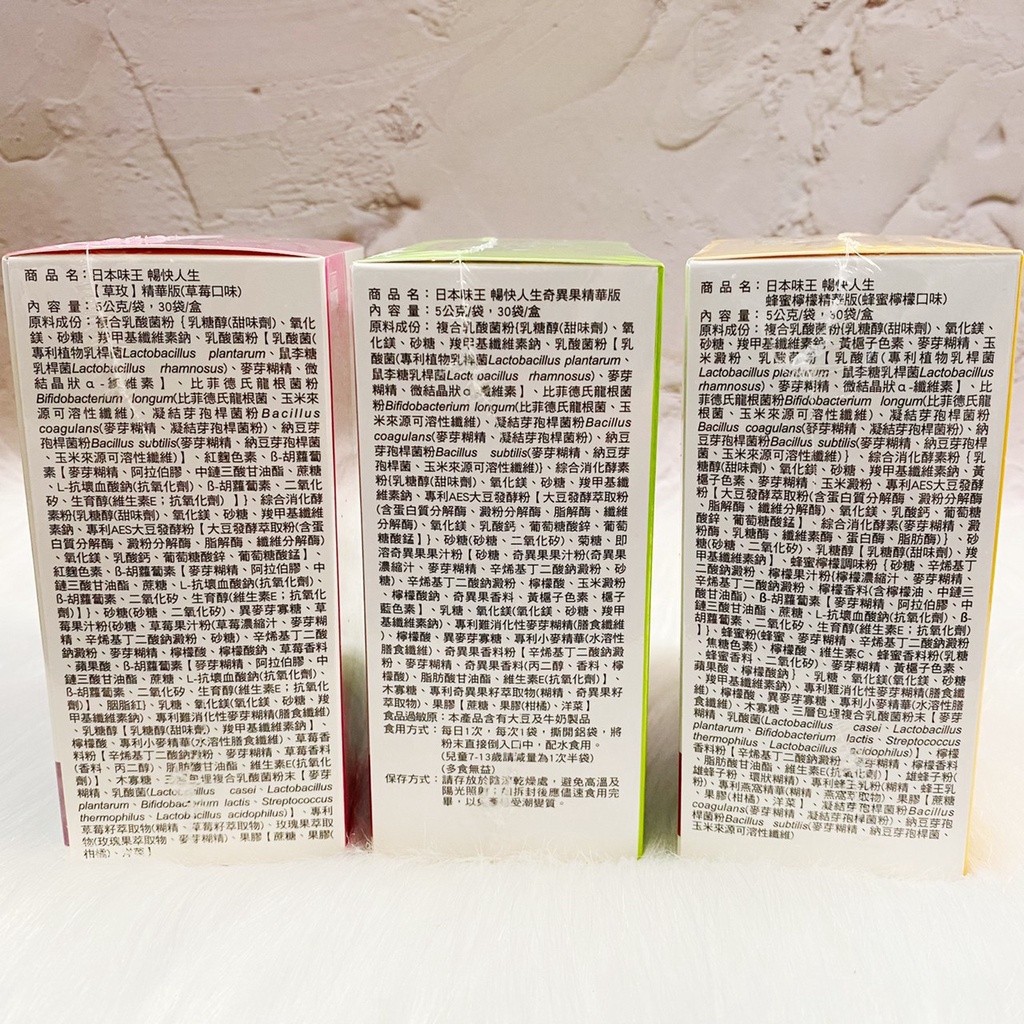 商品名：日本味王 暢快人生
【草玫】精華版(草莓口味)
內容量：5公克/袋，30袋/盒
原料成份：複合乳酸菌粉｛乳糖醇(甜味劑)、氧化
鎂、砂糖、羧甲基纖維素鈉、乳酸菌粉【乳酸菌(
專利植物乳桿菌Lactobacillus plantarum、鼠李糖
乳桿菌Lactobacillus rhamnosus)、麥芽糊精、微
結晶狀α-纖維素】、比菲德氏龍根菌粉
Bifidobacterium longum(比菲德氏龍根菌、玉米來
源可溶性纖維)、凝結芽孢桿菌粉Bacillus
coagulans(麥芽糊精、凝結芽孢桿菌粉)、納豆芽
孢桿菌粉Bacillus subtilis(麥芽糊精、納豆芽孢桿菌
、玉米來源可溶性纖維)、紅麴色素、ß-胡蘿蔔
素【麥芽糊精、阿拉伯膠、中鏈三酸甘油酯、蔗糖
、L-抗壞血酸鈉(抗氧化劑)、ß-胡蘿蔔素、二氧化
矽、生育醇(維生素E；抗氧化劑)】｝、綜合消化酵
素粉(乳糖醇(甜味劑)、氧化鎂、砂糖、羧甲基纖維
素鈉、專利AES大豆發酵粉【大豆發酵萃取粉(含蛋
白質分解酶、澱粉分解酶、脂肪分解酶、纖維分解酶)
、氧化鎂、乳酸鈣、葡萄糖酸鋅、葡萄糖酸錳】、
紅麴色素、ß-胡蘿蔔素【麥芽糊精、阿拉伯膠、中
鏈三酸甘油酯、蔗糖、L-抗壞血酸鈉(抗氧化劑)、
ß-胡蘿蔔素、二氧化矽、生育醇(維生素E；抗氧化
劑)】｝、砂糖(砂糖、二氧化矽)、異麥芽寡糖、草
莓果汁粉(砂糖、草莓果汁粉(草莓濃縮汁、麥芽糊
精、辛烯基丁二酸鈉澱粉、砂糖)、辛烯基丁二酸
鈉澱粉、麥芽糊精、檸檬酸、檸檬酸鈉、草莓香料
、蘋果酸、ß-胡蘿蔔素【麥芽糊精、阿拉伯膠、中
鏈三酸甘油酯、蔗糖、L-抗壞血酸鈉(抗氧化劑)、
ß-胡蘿蔔素、二氧化矽、生育醇(維生素E；抗氧化
劑)】、胭脂紅)、乳糖、氧化鎂(氧化鎂、砂糖、羧
甲基纖維素鈉)、專利難消化性麥芽糊精(膳食纖維)
、乳糖醇【乳糖醇(甜味劑)、羧甲基纖維素鈉】、
檸檬酸、專利小麥精華(水溶性膳食纖維)、草莓香
料【辛烯基丁二酸鈉澱粉、麥芽糊精、草莓香料
(香料、丙二醇)、脂肪酸甘油酯、維生素E(抗氧化
劑)】、木寡糖、三層包埋複合乳酸菌粉末【麥芽
糊精、乳酸菌(Lactobacillus casei、Lactobacillus
plantarum、Bifidobacterium lactis、Streptococcus
thermophilus、Lactobacillus acidophilus)】、專利
草莓籽萃取物(糊精、草莓籽萃取物)、玫瑰果萃取
物(玫瑰果萃取物、麥芽糊精)、果膠【蔗糖、果膠(
柑橘)、洋菜】
商品名：日本味王 暢快人生奇異果精華版
內容量：5公克/袋，30袋/盒
原料成份：複合乳酸菌粉(乳糖醇(甜味劑)、氧化
鎂、砂糖、羧甲基纖維素鈉、黃梔子色
素、麥芽糊精、玉米澱粉、乳酸菌粉【
乳酸菌(專利植物乳桿菌Lactobacillus plantarum、
鼠李糖乳桿菌Lactobacillus rhamnosus)、麥芽
糊精、微結晶狀α-纖維素】、比菲德氏龍根菌
粉Bifidobacterium longum(比菲德氏龍根菌、玉
米來源可溶性纖維)、凝結芽孢桿菌粉Bacillus
coagulans(麥芽糊精、凝結芽孢桿菌粉)、納豆
芽孢桿菌粉Bacillus subtilis(麥芽糊精、納豆芽
孢桿菌、玉米來源可溶性纖維)｝、綜合消化酵素
粉(乳糖醇(甜味劑)、氧化鎂、砂糖、羧甲基纖
維素鈉、專利AES大豆發酵粉【大豆發酵萃取粉
(含蛋白質分解酶、澱粉分解酶、脂肪分解酶、纖維
分解酶)、氧化鎂、乳酸鈣、葡萄糖酸鋅、葡萄
糖酸錳】｝、砂糖(砂糖、二氧化矽)、菊糖、即
溶奇異果果汁粉【砂糖、奇異果果汁粉(奇異果
濃縮汁、麥芽糊精、辛烯基丁二酸鈉澱粉、砂
糖)、辛烯基丁二酸鈉澱粉、檸檬酸、玉米澱粉
、檸檬酸鈉、奇異果香料、黃梔子色素、梔子
藍色素】、乳糖、氧化鎂(氧化鎂、砂糖、羧甲
基纖維素鈉)、專利難消化性麥芽糊精(膳食纖維)
、檸檬酸、異麥芽寡糖、專利小麥精華(水溶性
膳食纖維)、奇異果香料【辛烯基丁二酸鈉澱
粉、麥芽糊精、奇異果香料(丙二醇、香料、檸
檬酸)、脂肪酸甘油酯、維生素E(抗氧化劑)】、
木寡糖、專利奇異果籽萃取物(糊精、奇異果籽
萃取物)、果膠【蔗糖、果膠(柑橘)、洋菜】
食品過敏原：本產品含有大豆及牛奶製品
食用方式：每日1次，每次1袋，撕開鋁袋，將
粉末直接倒入口中，配水食用。
(兒童7-13歲請減量為1次半袋)
(多食無益)
保存方式：請存放於陰涼乾燥處，避免高溫及
陽光照射；如拆封後應儘速食用完
畢，以免產品受潮變質。
商品名：日本味王 暢快人生
蜂蜜檸檬精華版(蜂蜜檸檬口味)
內容量：5公克/袋，30袋/盒
原料成份：複合乳酸菌粉(乳糖醇(甜味劑)、氧化鎂、
砂糖、羧甲基纖維素鈉、黃梔子色素、麥芽糊精、玉
米澱粉、乳酸菌粉【乳酸菌(專利植物乳桿菌
Lactobacillus plantarum、鼠李糖乳桿菌Lactobacillus
rhamnosus)、麥芽糊精、微結晶狀α-纖維素】、比
菲德氏龍根菌粉Bifidobacterium longum(比菲德氏龍
根菌、玉米來源可溶性纖維)、凝結芽孢桿菌粉
Bacillus coagulans(麥芽糊精、凝結芽孢桿菌粉)、納
豆芽孢桿菌粉Bacillus subtilis(麥芽糊精、納豆芽孢桿
菌、玉米來源可溶性纖維)｝、綜合消化酵素粉｛乳
糖醇(甜味劑)、氧化鎂、砂糖、羧甲基纖維素鈉、黃
梔子色素、麥芽糊精、玉米澱粉、專利AES大豆發酵
粉【大豆發酵萃取粉(含蛋白質分解酶、澱粉分解酶
、脂肪分解酶、纖維分解酶)、氧化鎂、乳酸鈣、葡萄糖
酸鋅、葡萄糖酸錳】、綜合消化酵素(麥芽糊精、澱
粉酶、乳糖酶、纖維素酶、蛋白酶、脂肪酶)｝、砂
糖(砂糖、二氧化矽)、乳糖醇【乳糖醇(甜味劑)、羧
甲基纖維素鈉】、蜂蜜檸檬調味粉｛砂糖、辛烯基丁
二酸鈉澱粉、檸檬果汁粉(檸檬濃縮汁、麥芽糊精、
辛烯基丁二酸鈉澱粉、檸檬香料(含檸檬油、中鏈三
酸甘油酯)、ß-胡蘿蔔素【麥芽糊精、阿拉伯膠、中
鏈三酸甘油酯、蔗糖、L-抗壞血酸鈉(抗氧化劑)、ß-
胡蘿蔔素、二氧化矽、生育醇(維生素E；抗氧化劑)
】｝、蜂蜜粉(蜂蜜、麥芽糊精、辛烯基丁二酸鈉澱粉、
焦糖色素)、檸檬酸、維生素C、蜂蜜香料粉(乳糖
、蜂蜜香料、二氧化矽)、麥芽糊精、黃梔子色素、
蘋果酸、檸檬酸鈉｝、乳糖、氧化鎂(氧化鎂、砂糖
、羧甲基纖維素鈉)、專利難消化性麥芽糊精(膳食纖
維)、檸檬酸、異麥芽寡糖、專利小麥精華(水溶性膳
食纖維)、木寡糖、三層包埋複合乳酸菌粉末【麥芽
糊精、乳酸菌(Lactobacillus casei、Lactobacillus
plantarum、Bifidobacterium lactis、Streptococcus
thermophilus、Lactobacillus acidophilus)】、檸檬
香料粉【辛烯基丁二酸鈉澱粉、麥芽糊精、檸檬香料
、脂肪酸甘油酯、維生素E(抗氧化劑)】、雄蜂子粉(
雄蜂子粉、環狀糊精)、專利蜂王乳粉(糊精、蜂王乳
)、專利燕窩精華(糊精、燕窩萃取物)、果膠【蔗糖
、果膠(柑橘)、洋菜】、凝結芽孢桿菌粉Bacillus
coagulans(麥芽糊精、凝結芽孢桿菌粉)、納豆芽孢桿
菌粉Bacillus subtilis(麥芽糊精、納豆芽孢桿菌、
玉米來源可溶性纖維)